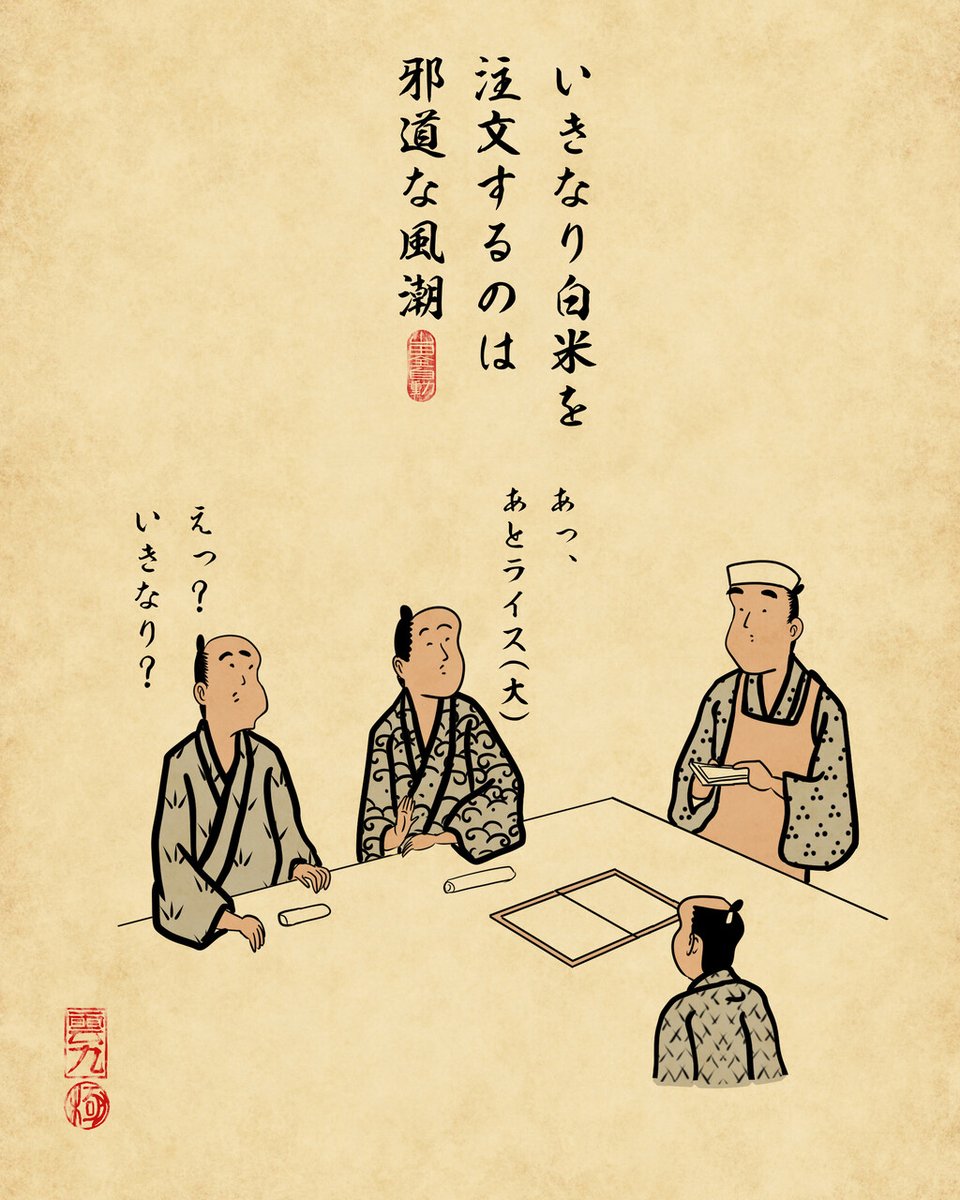 いきなり白米を
注文するのは
邪道な風潮
あっ、
あとライス(大)
えっ?
いきなり?
雲九
極